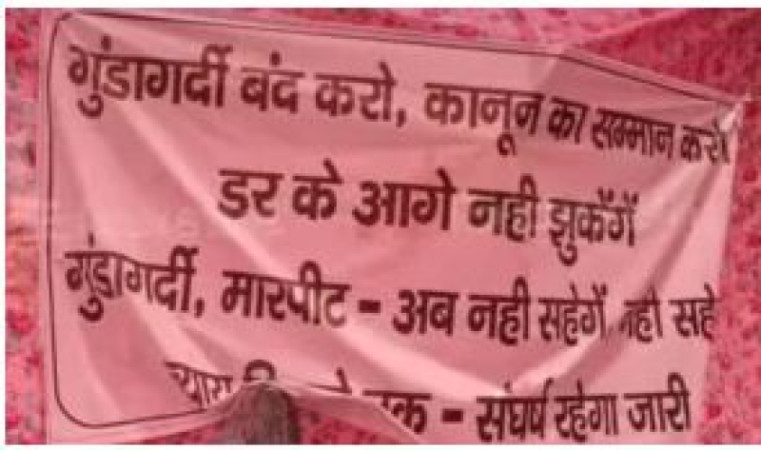 गुंडागर्दी बंद करो, कानून का सम्मान करो
डर के आगे नही झुकेंगें
गुंडागर्दी, मारपीट - अब नही सहेगें नही सहे
तक - संघर्ष रहेगा जारी